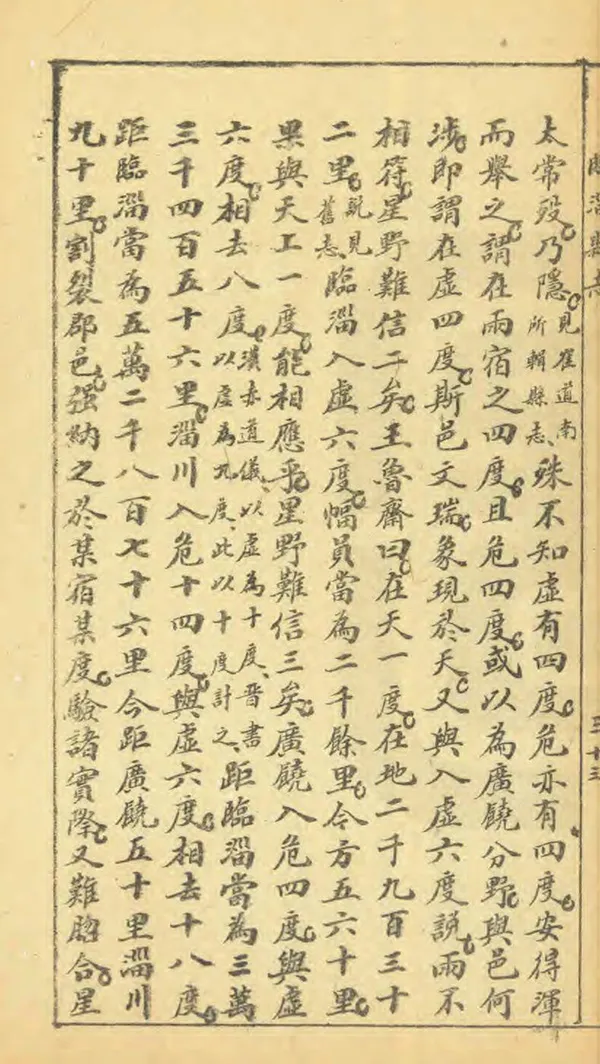 臨淄縣志
三十三
太常歿乃隱見崔道南所輯縣志殊不知虛有四度危亦有四度安得渾
而舉之謂在兩宿之四度且危四度或以為廣饒分野與邑何
涉即謂在虛四度斯邑文瑞象現於天又與入虛六度說兩不
相符星野難信二矣王魯齋曰在天一度在地二千九百三十
二里說見舊志臨淄入虛六度幅員當為二千餘里今方五六十里
果與天工一度能相應乎星野難信三矣廣饒入危四度與虛
六度相去八度漢赤道儀以虛為十度晉書以虛為九度此以十度計之距臨淄當為三萬
三千四百五十六里淄川入危十四度與虛六度相去十八度
距臨淄當為五萬二千八百七十六里今距廣饒五十里淄川
九十里割裂郡邑强納之於某宿某度驗諸實際又難脗合星